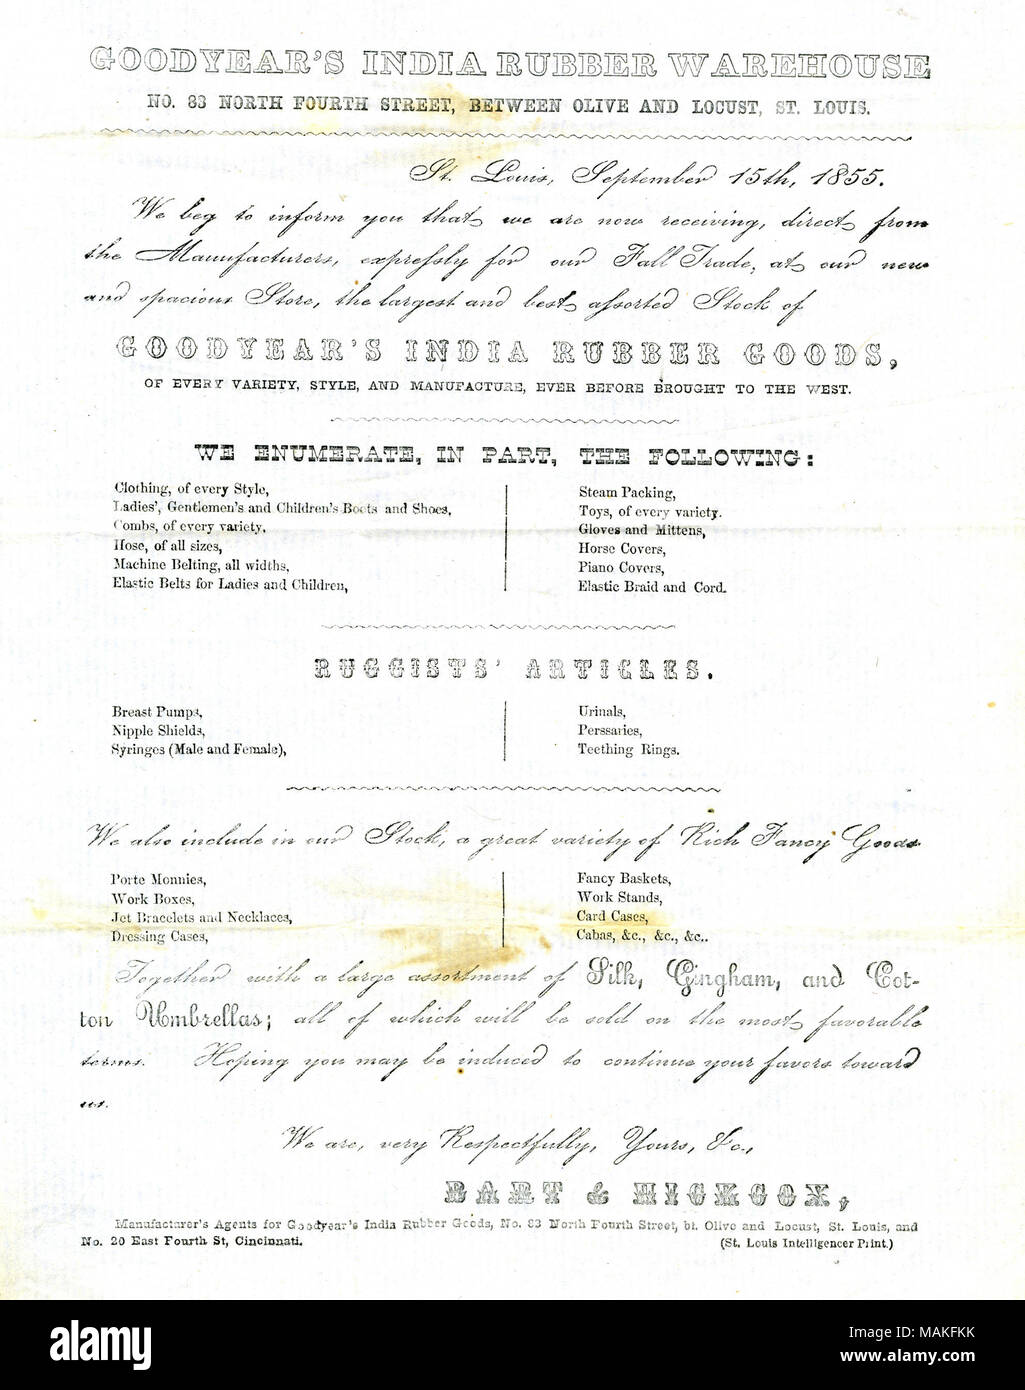 GOODYEAR'S INDIA RUBBER WAREHOUSE
NO. 83 NORTH FOURTH STREET, BETWEEN OLIVE AND LOCUST, ST. LOUIS.
St. Louis, September 15th, 1855.
We beg to inform you that we are now receiving, direct from
the Manufacturers, expressly for our Fall Trade, at our new
and spacious Store, the largest and best assorted Stock of
GOODYEAR'S INDIA RUBBER GOODS,
OF EVERY VARIETY, STYLE, AND MANUFACTURE, EVER BEFORE BROUGHT TO THE WEST.
WE ENUMERATE, IN PART, THE FOLLOWING:
Clothing, of every Style,
Ladies', Gentlemen's and Children's Boots and Shoes,
Combs, of every variety,
Hose, of all sizes,
Machine Belting, all widths,
Elastic Belts for Ladies and Children,
Steam Packing,
Toys, of every variety.
Gloves and Mittens,
Horse Covers,
Piano Covers,
Elastic Braid and Cord.
RUGGISTS' ARTICLES.
Breast Pumps,
Nipple Shields,
Syringes (Male and Female),
Urinals,
Perssaries,
Teething Rings.
We also include in our Stock, a great variety of Rich Fancy Goods
Porte Monnies,
Work Boxes,
Jet Bracelets and Necklaces,
Dressing Cases,
Fancy Baskets,
Work Stands,
Card Cases,
Cabas, &c., &c., &c..
Together with a large assortment of Silk, Gingham, and Cot-
ton Umbrellas; all of which will be sold on the most favorable
terms. Hoping you may be induced to continue your favors toward
us.
We are, very Respectfully, Yours, &c.,
BART & HICKCOX,
Manufacturer's Agents for Goodyear's India Rubber Goods, No. 83 North Fourth Street, bt. Olive and Locust, St. Louis, and
No. 20 East Fourth St, Cincinnati.
(St. Louis Intelligencer Print.)
alamy
a
a
a
alamy stock photo
MAKFKK
www.alamy.com